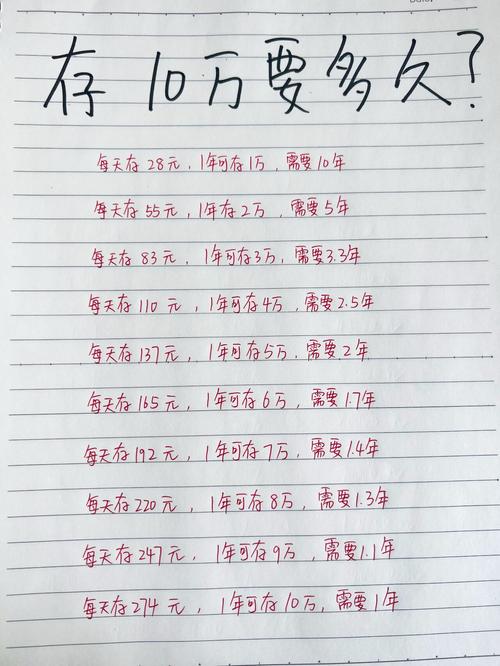 存10万要多久?
每天存28元,1年可存1万,需要10年
每天存55元,1年存2万,需要5年
每天存83元,1年可存3万,需要3.3年
每天存110元,1年可存4万,需要2.5年
每天存137元,1年可存5万,需要2年
每天存165元,1年可存6万,需要1.7年
每天存192元,1年可存7万,需要1.4年
每天存220元,1年可存8万,需要1.3年
每天存247元,1年可存9万,需要1.1年
每天存274元,1年可存10万,需要1年